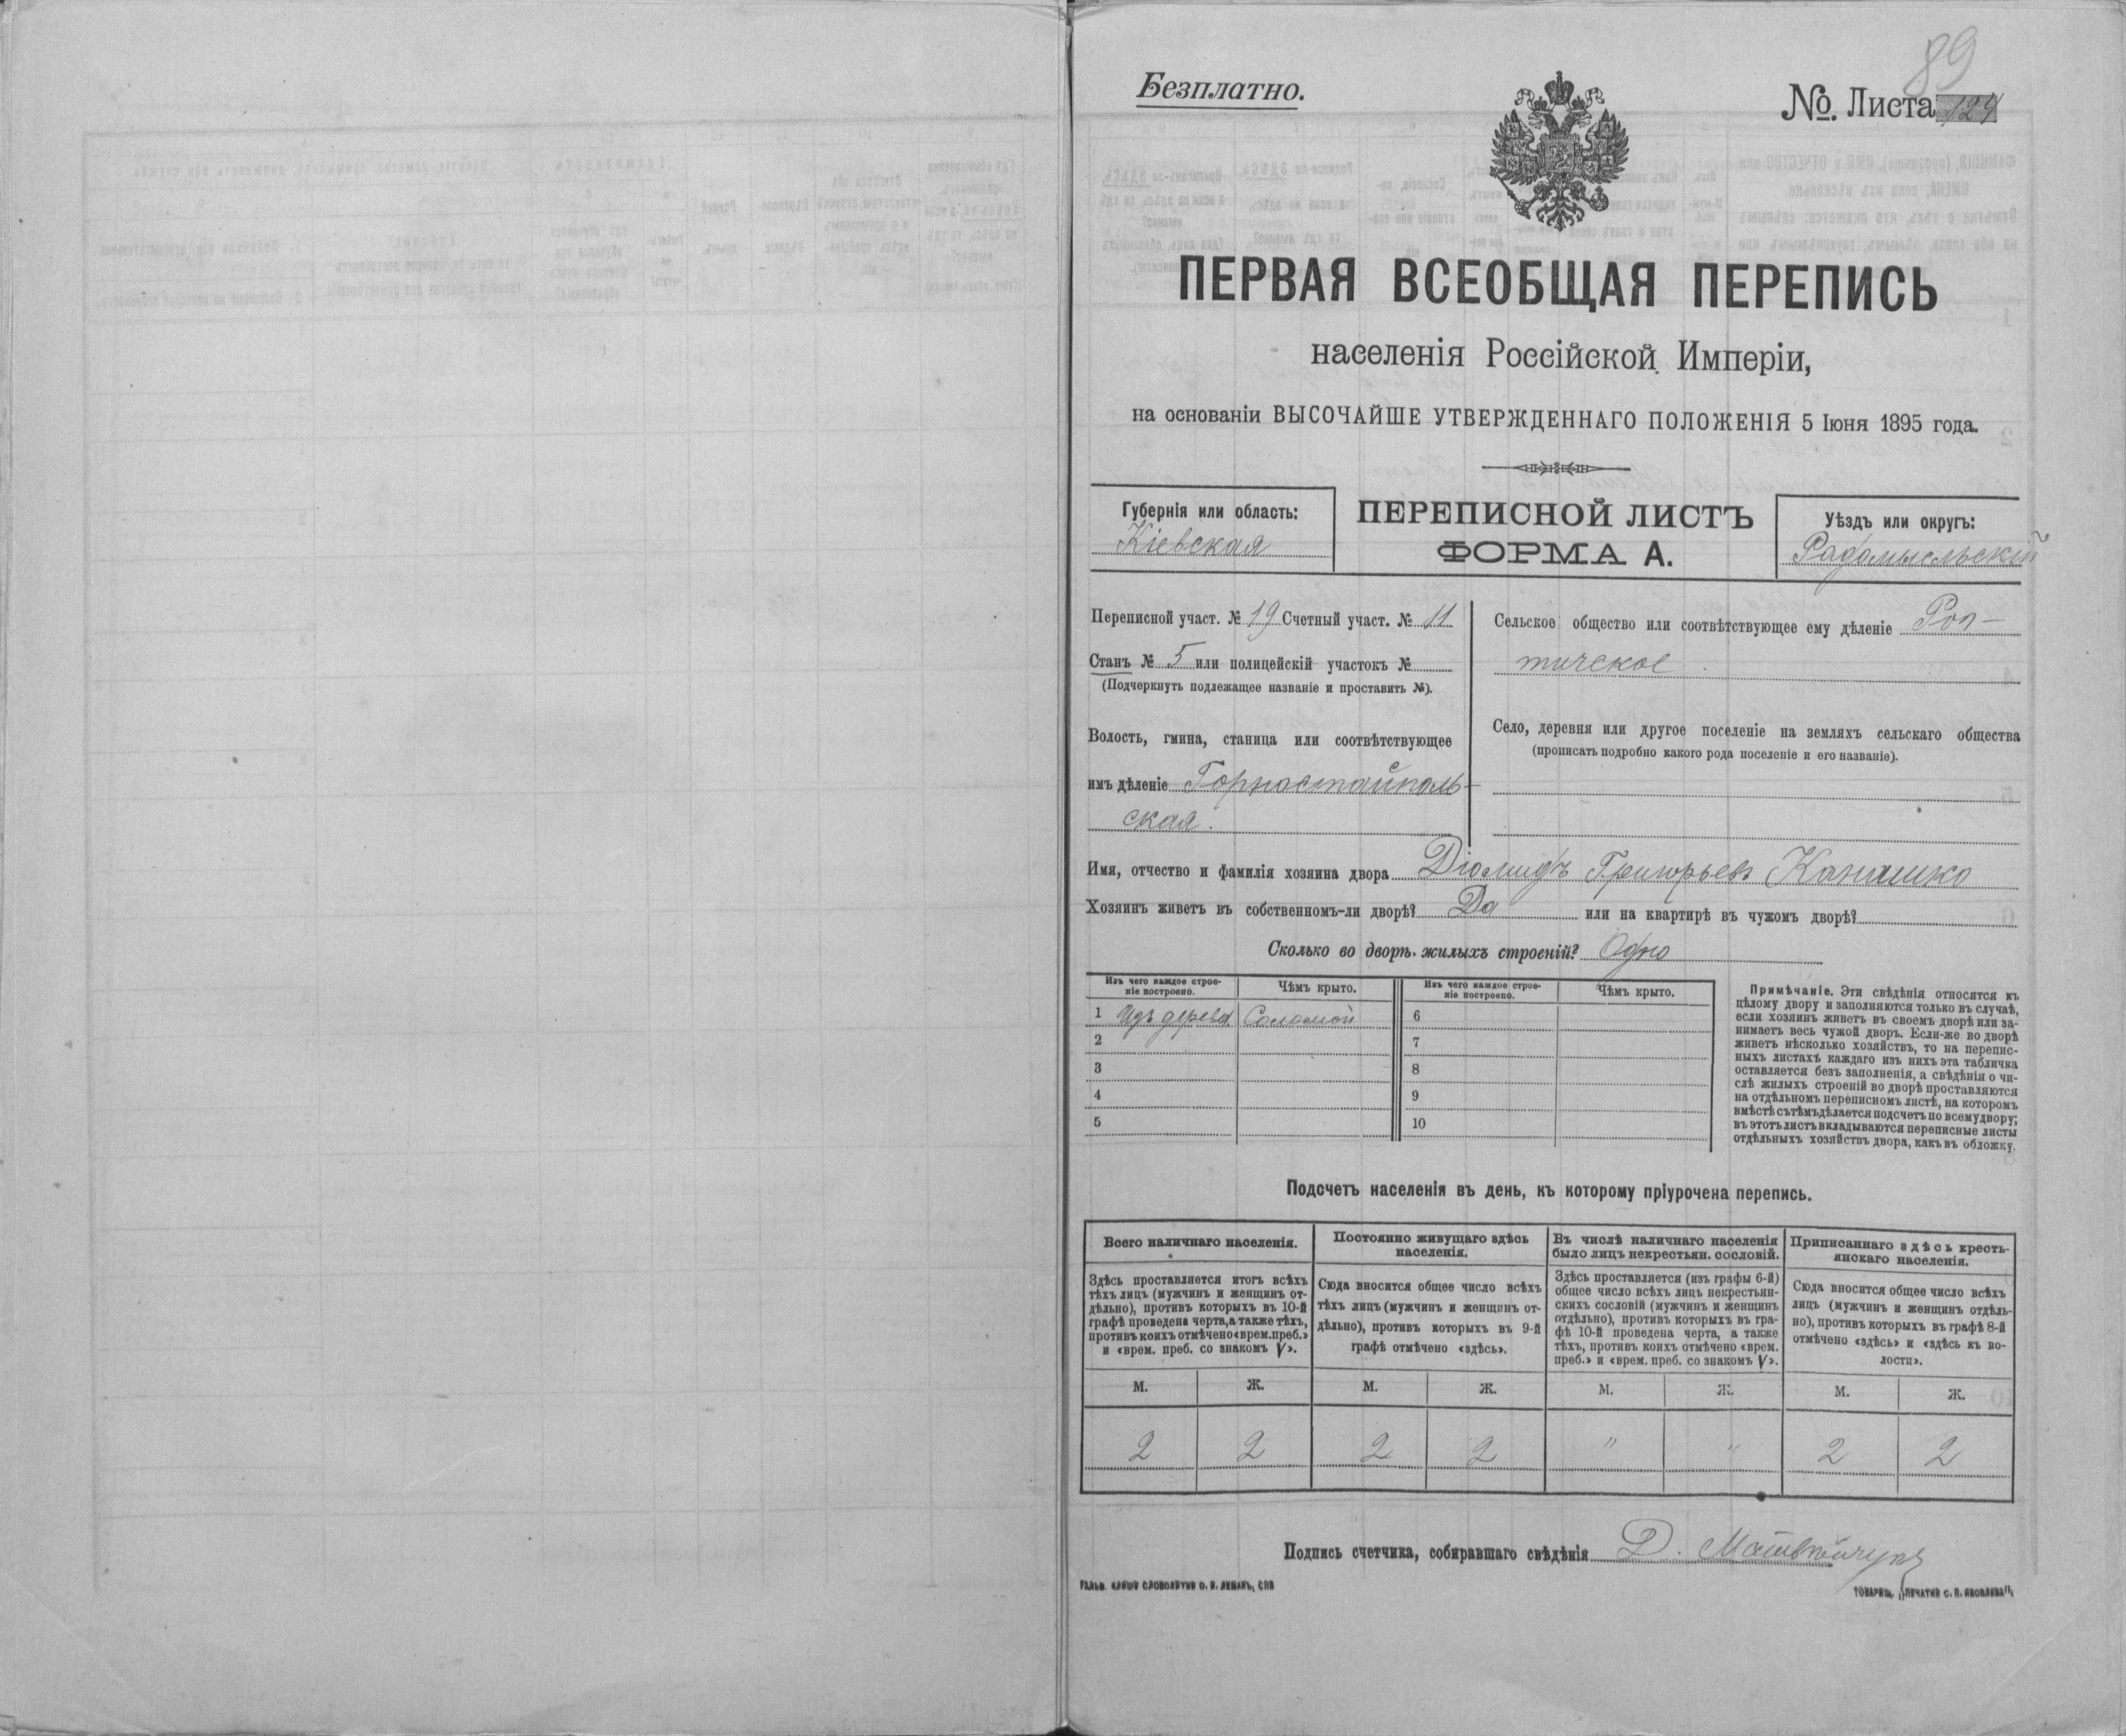 89
Безплатно.
№. Листа 124
ПЕРВАЯ ВСЕОБЩАЯ ПЕРЕПИСЬ
населенія Россійской Имперіи,
на основаніи ВЫСОЧАЙШЕ УТВЕРЖДЕННАГО ПОЛОЖЕНІЯ 5 Іюня 1895 года.
Губернія или область:
Кіевская
ПЕРЕПИСНОЙ ЛИСТЪ
ФОРМА А.
Уѣздъ или округъ:
Радомысльскій
Переписной участ. № 19 Счетный участ. № 11
Станъ № 5 или полицейскій участокъ №
(Подчеркнуть подлежащее названіе и проставить №).
Волость, гмина, станица или соотвѣтствующее
имъ дѣленіе Горностайполь-
ская.
Сельское общество или соотвѣтствующее ему дѣленіе Роп-
тичское
Село, деревня или другое поселеніе на земляхъ сельскаго общества
(прописать подробно какого рода поселеніе и его названіе).
Имя, отчество и фамилія хозяина двора Діомидъ Григорьевъ
Хозяинъ живетъ въ собственномъ-ли дворѣ? Да или на квартирѣ въ чужомъ дворѣ?
Сколько во дворѣ жилыхъ строеній? Одно
Изъ чего каждое строе-
ніе построено.
Чѣмъ крыто.
Изъ чего каждое строе-
ніе построено.
Чѣмъ крыто.
1 Изъ дерева Соломой 6
2 7
3 8
4 9
5 10
Примѣчаніе. Эти свѣдѣнія относятся къ
цѣлому двору и заполняются только въ случаѣ,
если хозяинъ живетъ въ своемъ дворѣ или за-
нимаетъ весь чужой дворъ. Если-же во дворѣ
живетъ нѣсколько хозяйствъ, то на перепис-
ныхъ листахъ каждаго изъ нихъ эта табличка
оставляется безъ заполненія, а свѣдѣнія о чи-
слѣ жилыхъ строеній во дворѣ проставляются
на отдѣльномъ переписномъ листѣ, на которомъ
вмѣстѣ съ тѣмъ дѣлается подсчетъ по всему двору;
въ этотъ листъ вкладываются переписные листы
отдѣльныхъ хозяйствъ двора, какъ въ обложку.
Подсчетъ населенія въ день, къ которому пріурочена перепись.
Всего наличнаго населенія.
Здѣсь проставляется итогъ всѣхъ
тѣхъ лицъ (мужчинъ и женщинъ от-
дѣльно), противъ которыхъ въ 10-й
графѣ проведена черта, а также тѣхъ,
противъ коихъ отмѣчено «врем. преб.»
и «врем. преб. со знакомъ V».
Постоянно живущаго здѣсь
населенія.
Сюда вносится общее число всѣхъ
тѣхъ лицъ (мужчинъ и женщинъ от-
дѣльно), противъ которыхъ въ 9-й
графѣ отмѣчено «здѣсь».
Въ числѣ наличнаго населенія
было лицъ некрестьян. сословій.
Здѣсь проставляется (изъ графы 6-й)
общее число всѣхъ лицъ некрестьян-
скихъ сословій (мужчинъ и женщинъ
отдѣльно), противъ которыхъ въ гра-
фѣ 10-й проведена черта, а также
тѣхъ, противъ коихъ отмѣчено «врем.
преб.» и «врем. преб. со знакомъ V».
Приписаннаго здѣсь кресть-
янскаго населенія.
Сюда вносится общее число всѣхъ
лицъ (мужчинъ и женщинъ отдѣль-
но), противъ которыхъ въ графѣ 8-й
отмѣчено «здѣсь» и «здѣсь къ во-
лости».
М. Ж. М. Ж. М. Ж. М. Ж.
2 2 2 2 " " 2 2
Подпись счетчика, собиравшаго свѣдѣнія Д. Матвѣйчукъ
ГАЛЬВ. КЛИШЕ СЛОВОЛИТНИ О. И. ЛЕМАНЪ, СПБ
ТОВАРИЩ. „ПЕЧАТНЯ С. П. ЯКОВЛЕВА".